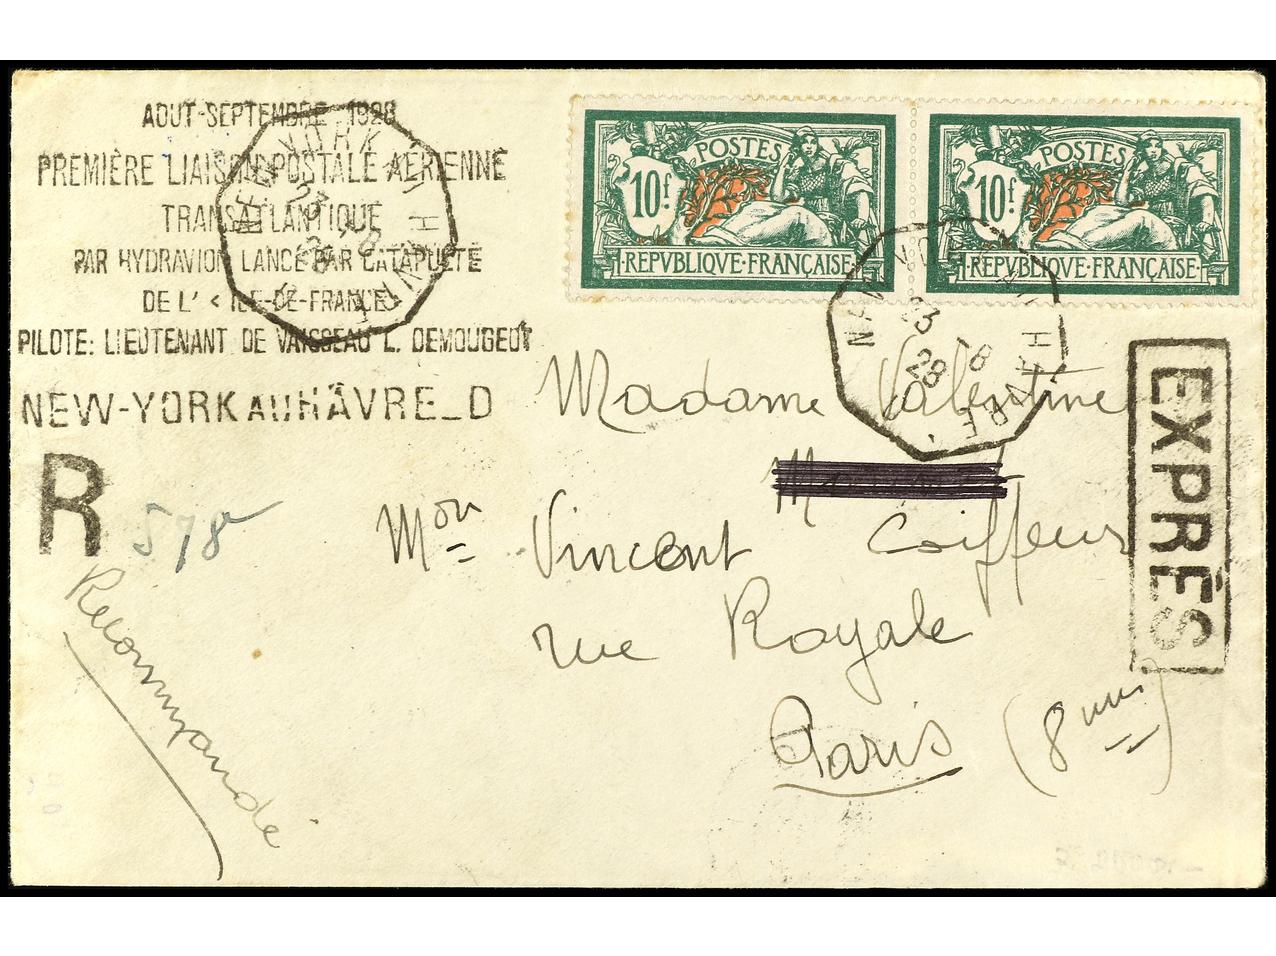 AOUT-SEPTEMBRE 1928
PREMIÈRE LIAISON POSTALE AÉRIENNE
TRANSATLANTIQUE
PAR HYDRAVION LANCÉ PAR CATAPULTE
DE L' "ILE-DE-FRANCE"
PILOTE: LIEUTENANT DE VAISSEAU L. DEMOUGEOT
NEW-YORK AU HÂVRE_D
NEW YORK AU HAVRE
23 -8
28
POSTES
10f.
REPVBLIQVE·FRANÇAISE
POSTES
10f.
REPVBLIQVE·FRANÇAISE
NEW YORK AU HAVRE
23 -8
28
EXPRÉS
R
578
Recommandé
Madame Valentine
Mon Vincent Coiffeur
rue Royale
Paris (8me)